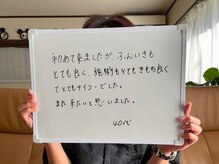 初めて来ましたが、ふんいきも
とても良く、施術もとてもきもち良く
とてもナイスーでした。
また来たいと思いました。
40代